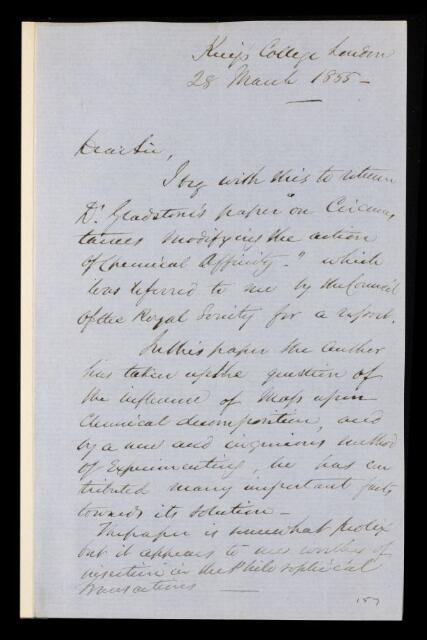 King's College London
28 March 1855 –
Dear Sir,
I beg with this to return
Dr. Gladstone's paper "on Circums
tances modifying the action
of Chemical Affinity." which
was referred to me by the Council
of the Royal Society for a report.
In this paper the author
has taken up the question of
the influence of Mass upon
Chemical decomposition, and
by a new and ingenious method
of Experimenting, he has con
tributed many important facts
towards its solution –
The paper is somewhat prolix
but it appears to me worthy of
insertion in the Philosophical
Transactions
157